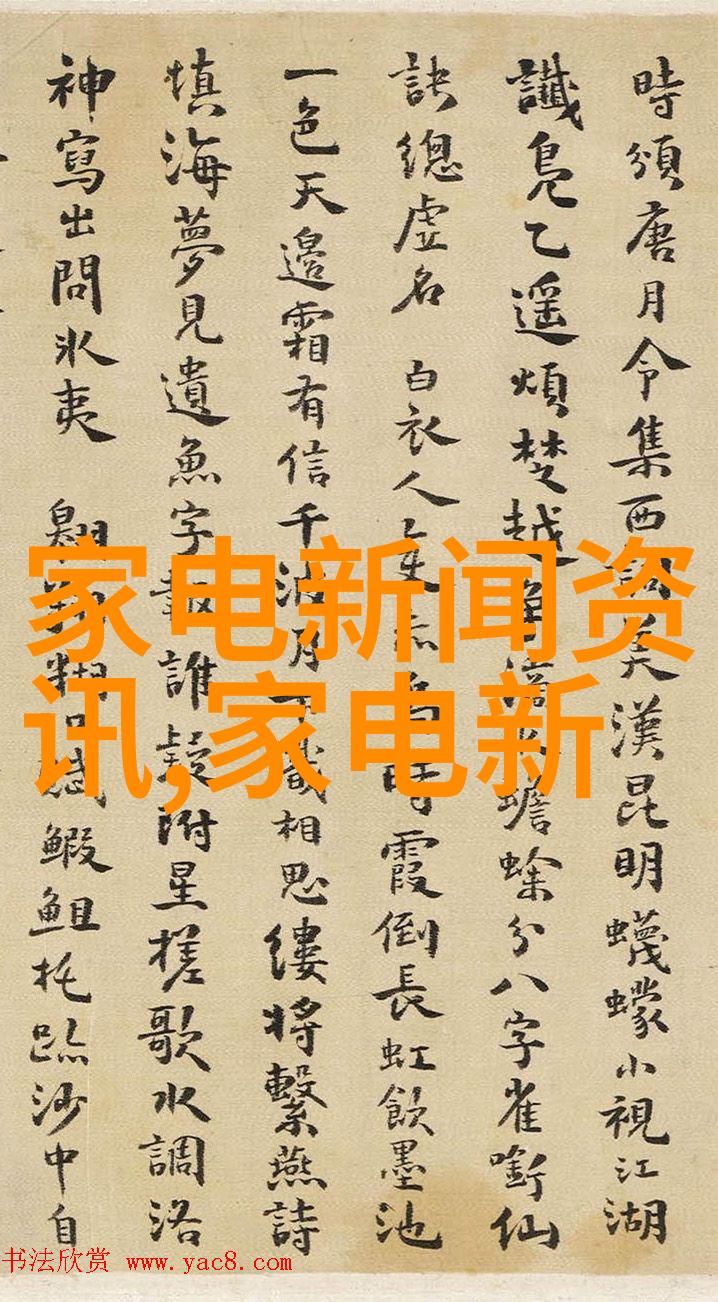 時頒唐月令集西美漢昆明蠛蠓小視江湖
讖鳧乙遥煩楚越蟾蜍分八字雀銜仙
訣總虛名 白衣人隻時霞倒長虹飲墨池
一色天邊霜有信千波月識相思縷將繫燕詩
填海夢見遺魚字報誰疑附星槎歌水調洛
神寫出問冰夷 翱翔糊口賦鰕鉏托跡沙中自
家电新闻资
讯,家电新
书法欣赏 www.yac8.com